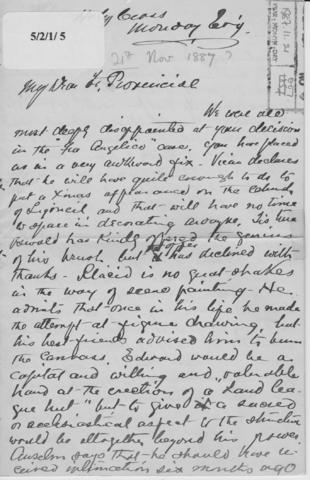 Holy Cross
Monday Ev'g
5/2/1/5
21st Nov 1887?
1887.11.21
My Dear Fr Provincial
We were all
most deeply disappointed at your decision
in the "Fra Angelico" case. You have placed
us in a very awkward fix. Vivian declares
that he will have quite enough to do to
put a Xmas appearance on the Church
of Ligoneil and that will have no time
to spare in decorating anyone.
Oswald has kindly offered the genius
of his brush, but has declined with
thanks - Placid is no great shakes
in the way of scene painting - He
admits that once in his life he made
the attempt at figure drawing, but
his best friends advised him to burn
the canvass. Edward would be a
capital and willing and valuable
hand at the erection of a "Land Lea-
gue hut" but to give it a sacred
or ecclesiastical aspect to the structure
would be altogether beyond his power.
Anselm says that he should have re-
ceived intimation six months ago